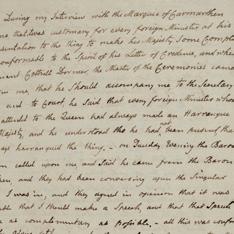 During my Interview with the Marquis of Carmarthen
me that it was customary for every foreign Minister at his
sentation to the King to make his Majesty some Compli
conformable to the Spirit of his Letter of Credence, and when
ment Cottrell Dormer, the Master of the Ceremonies came
me, that he should accompany me to the Secretary
and to Court, he said that every foreign Minister whom
attended to the Queen had always made an Harrangue
Majesty, and he understood tho he had not been present that
ays harrangued the King. on Tuesday Evening the Baron
called upon me and said he came from the Baron
and they had been conversing upon the Singular
I was in, and they agreed in opinion that it was
ble that I should make a Speech, and that that Speech
as complimentary as possible. all this was conform